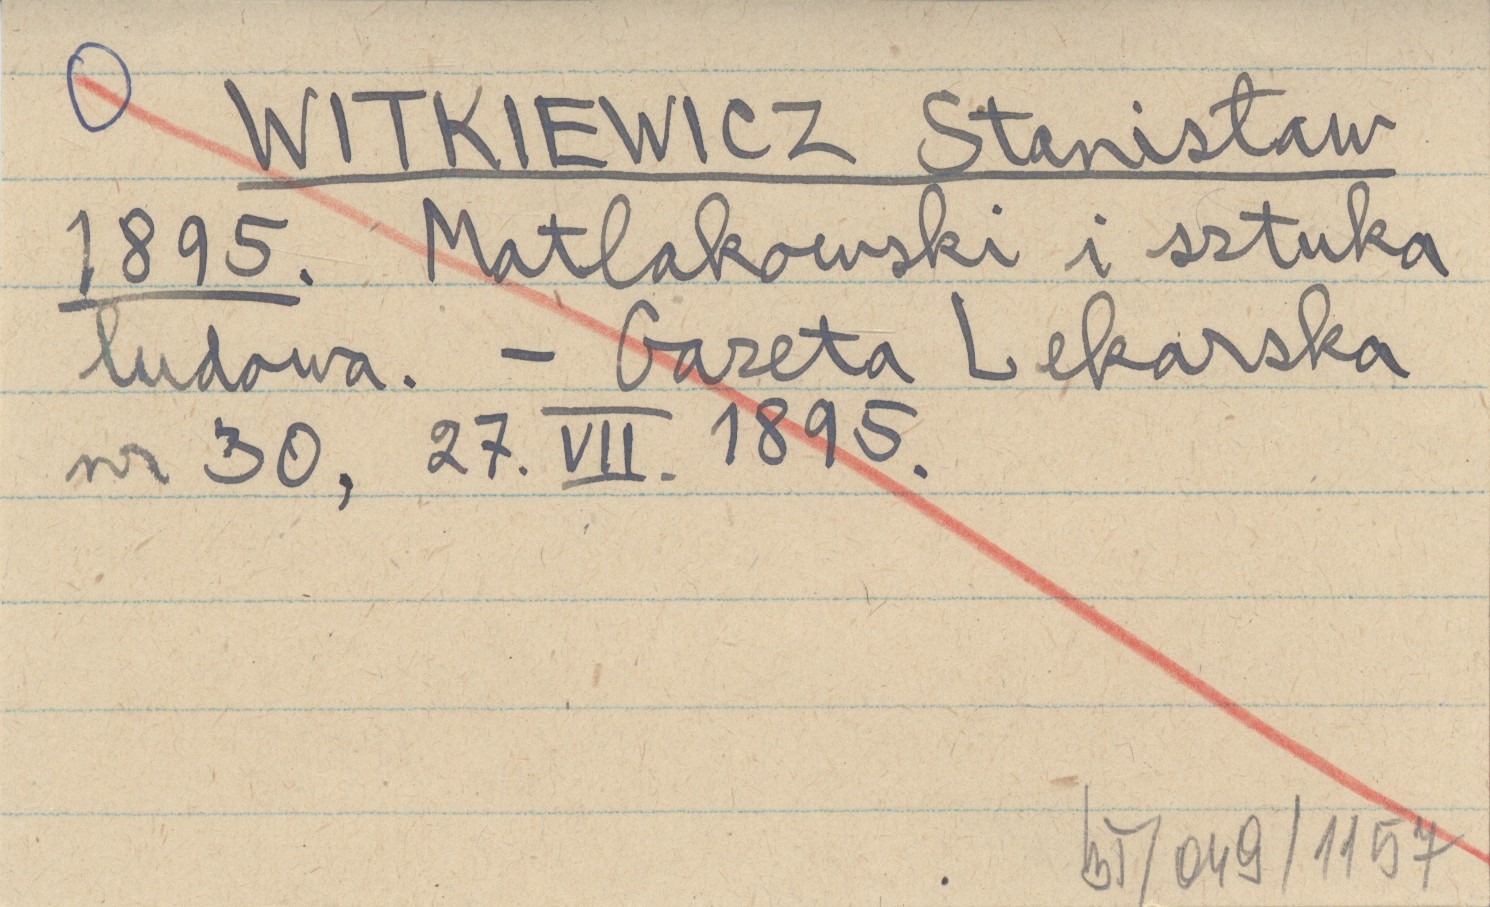 WITKIEWICZ Stanisław
1895. Matlakowski i sztuka
ludowa. – Gazeta Lekarska
nr 30, 27. VII. 1895.
/049/1157